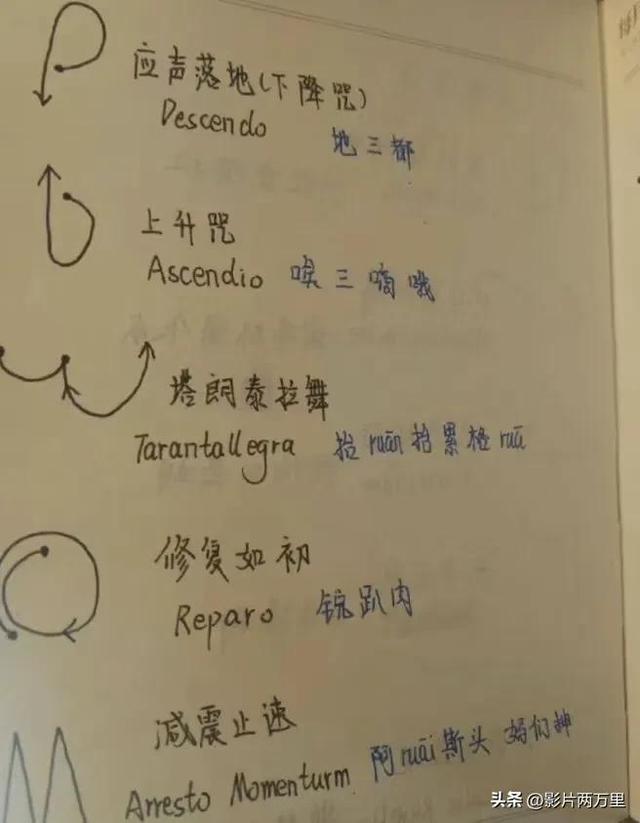 应声落地(下降咒)
Descendo 地三都
上升咒
Ascendio 唉三嘀哦
塔朗泰拉舞
Tarantallegra 抬ruān抬累格ruā
修复如初
Reparo 锐趴肉
减震止速
Arresto Momenturm 阿ruāi斯头 妈们
头条 @影片两万里